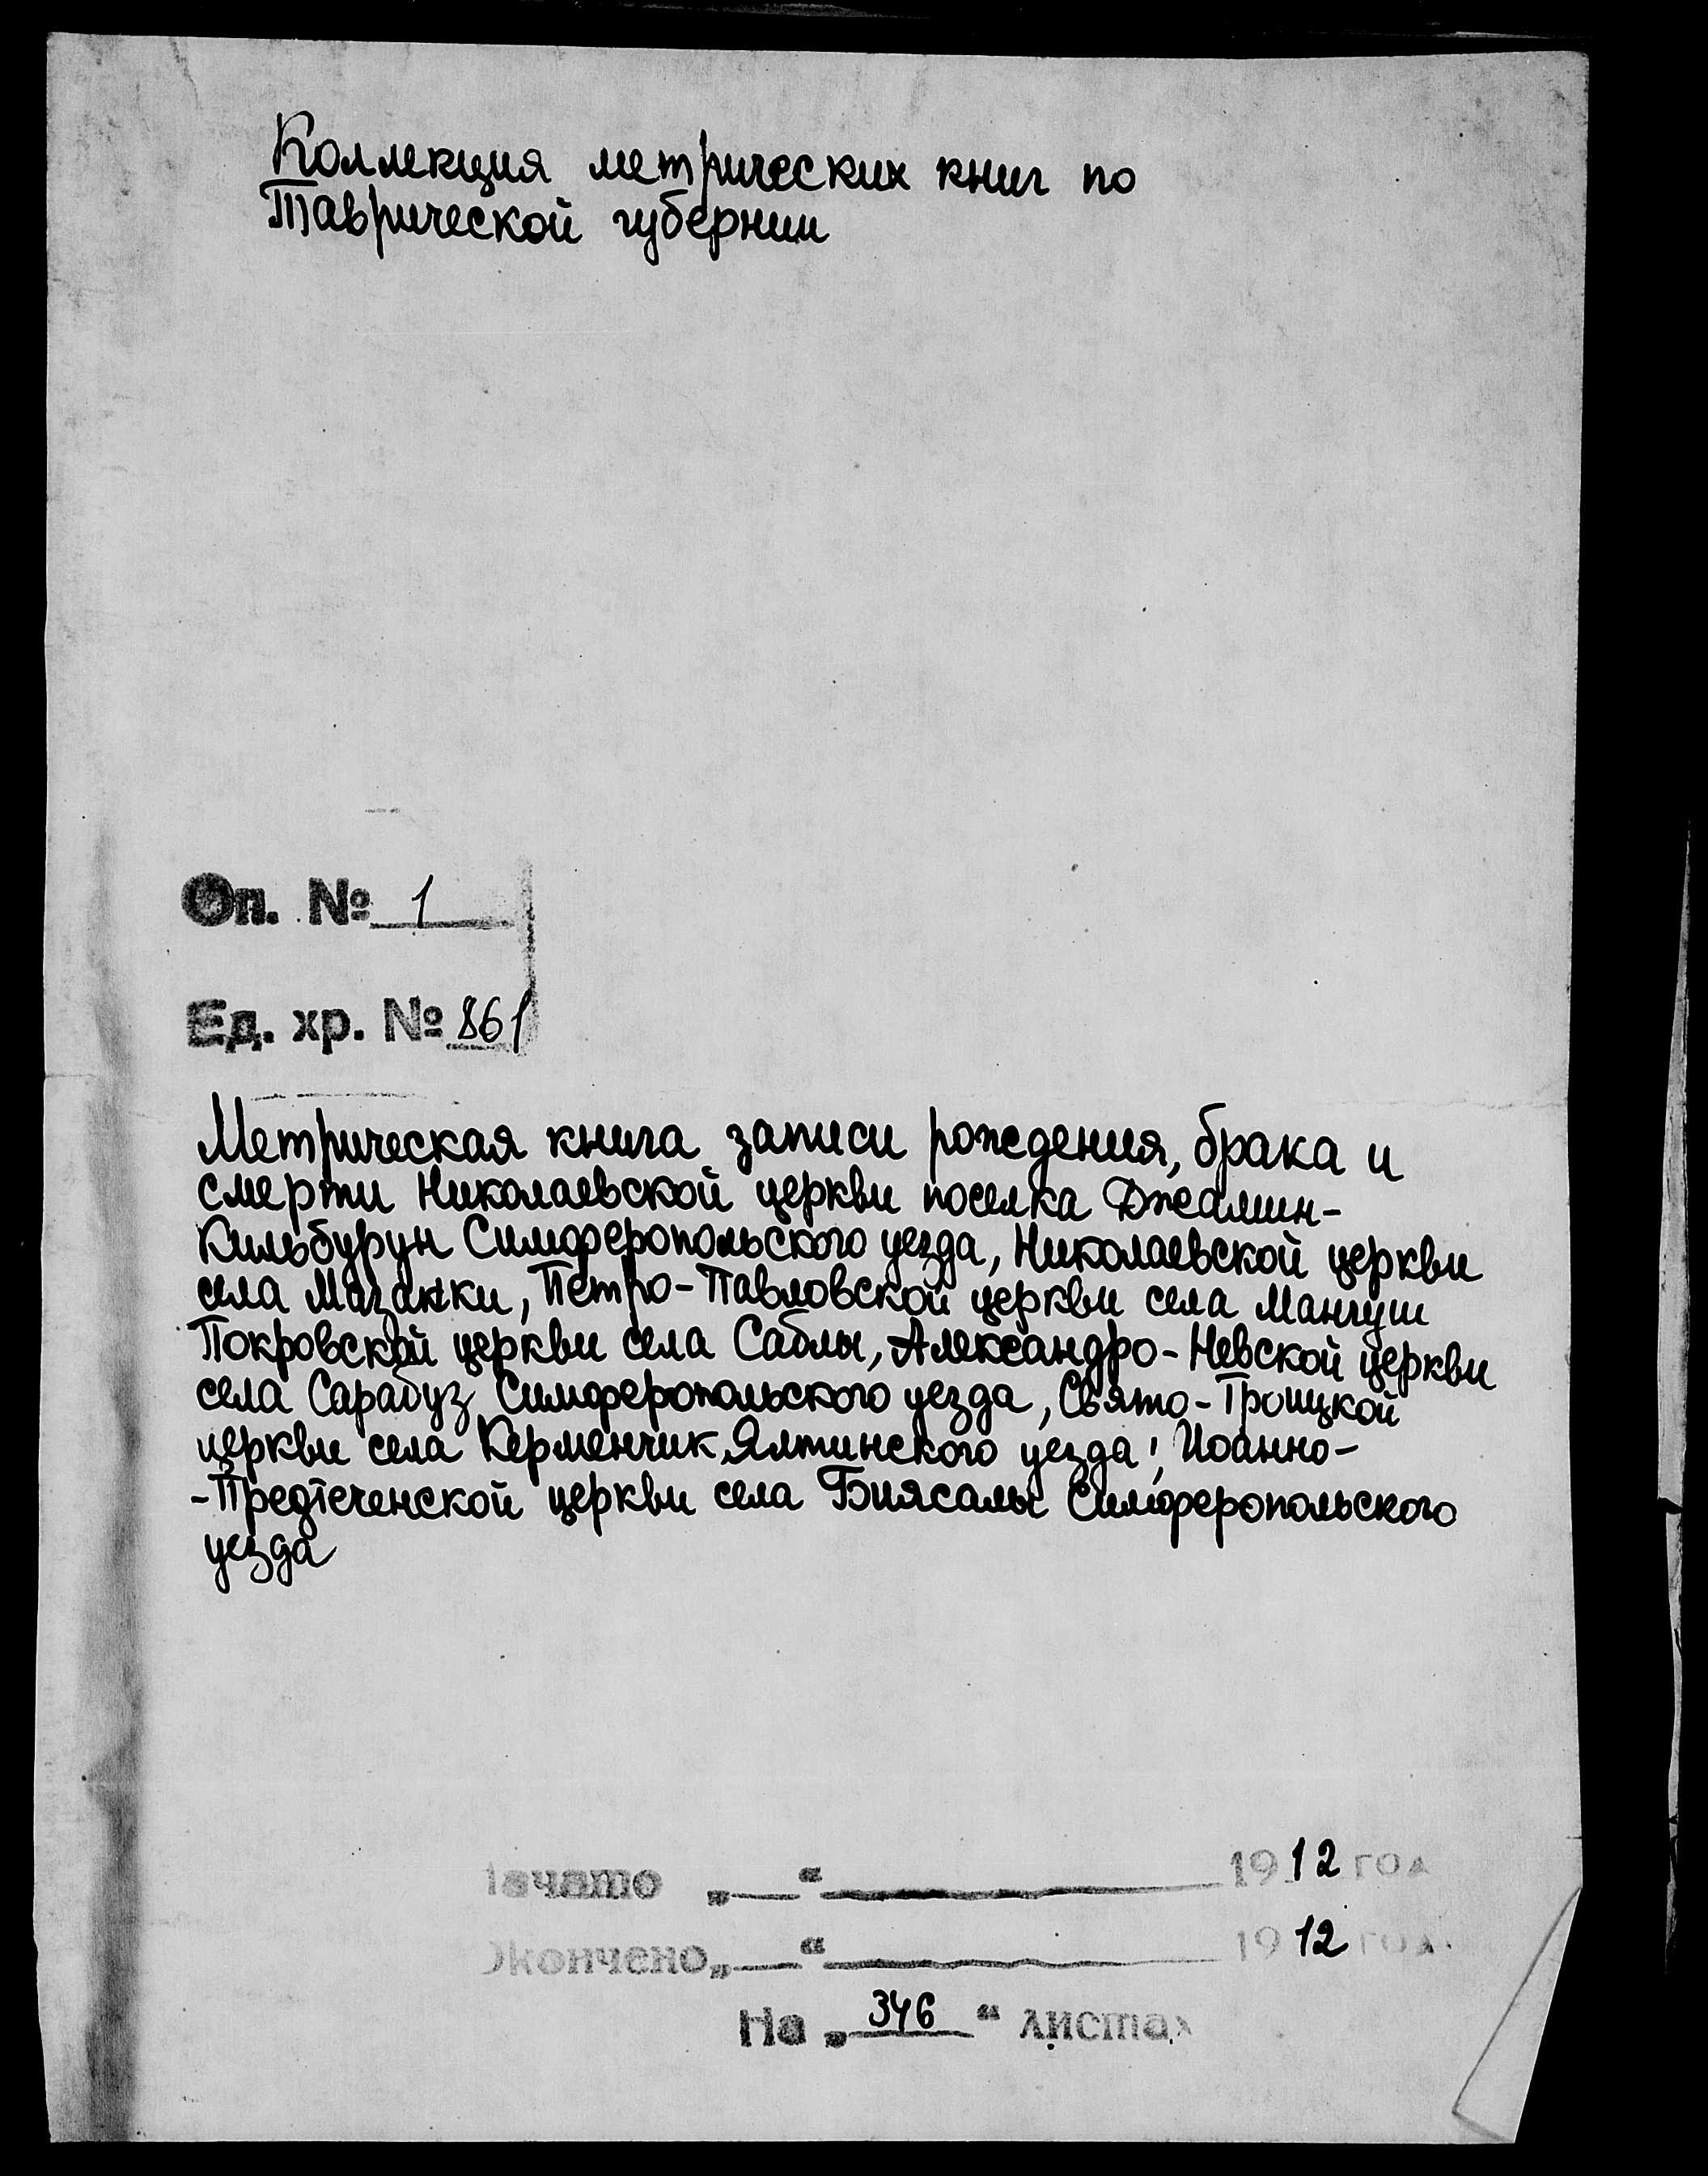 Коллекция метрических книг по
Таврической губернии
Оп. № 1
Ед. хр. № 861
Метрическая книга записи рождения, брака и
смерти Николаевской церкви поселка Джалмин-
Кильбурун Симферопольского уезда, Николаевской церкви
села Мазанки, Петро-Павловской церкви села Мангуш
Покровской церкви села Саблы, Александро-Невской церкви
села Сарабуз Симферопольского уезда, Свято-Троицкой
церкви села Керменчик Ялтинского уезда, Иоанно-
-Предтеченской церкви села Биясалы Симферопольского
уезда
Начато „__“ ________ 1912 год
Окончено „__“ ________ 1912 год.
На „346“ листах